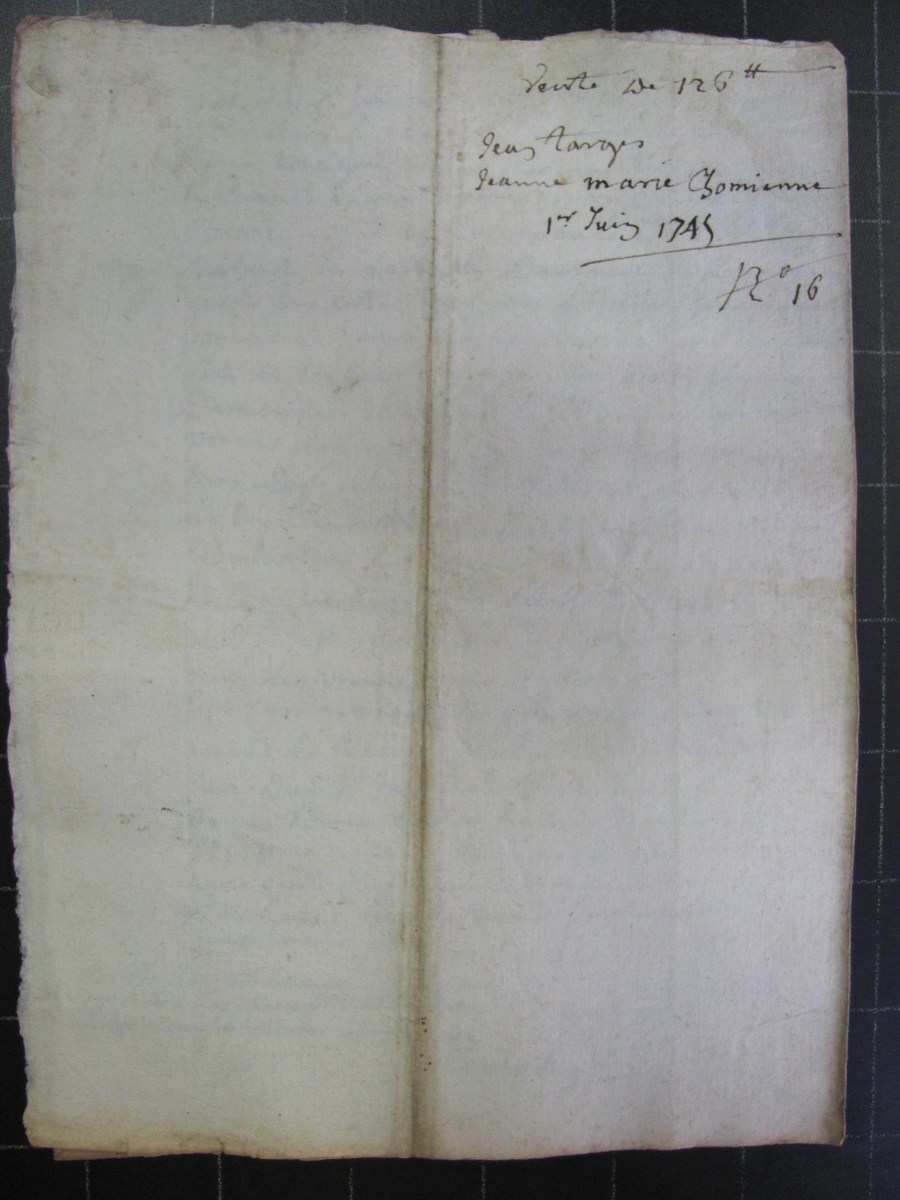 Vente de 126 ₶
Jean targes
Jeanne marie Chomienne
1er Juin 1745
No 16